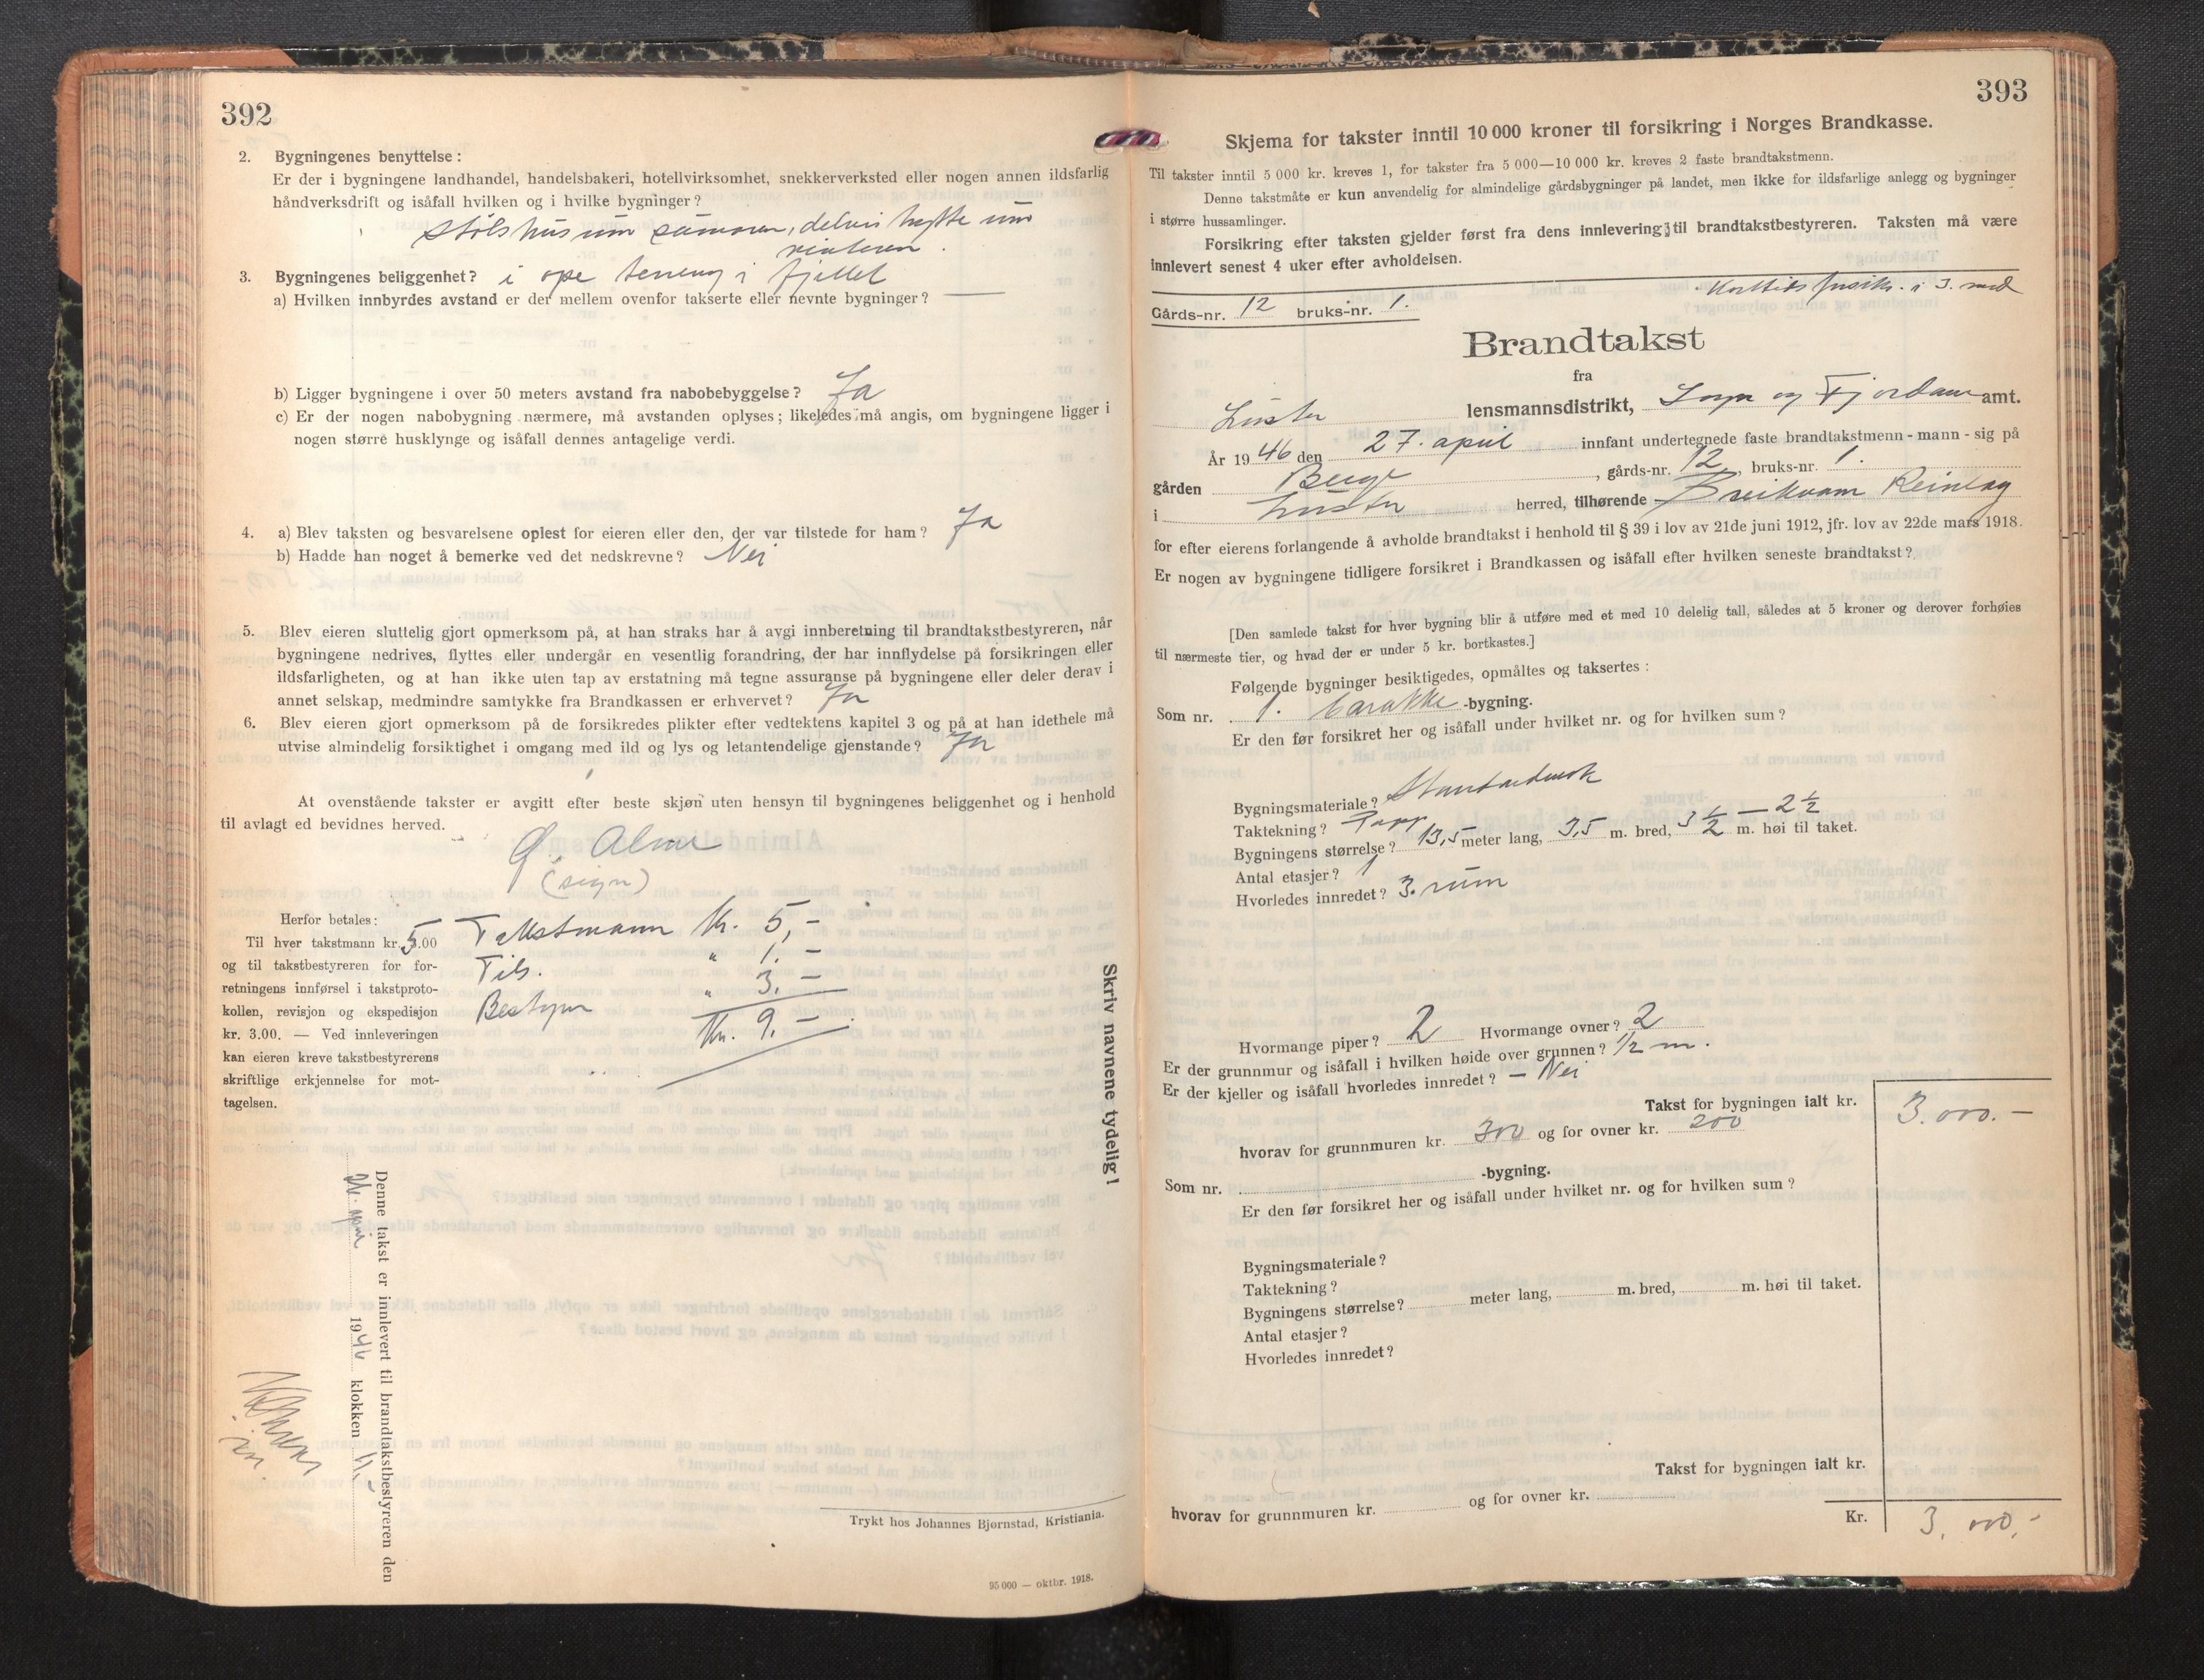 392
2. Bygningenes benyttelse:
Er der i bygningene landhandel, handelsbakeri, hotellvirksomhet, snekkerverksted eller nogen annen ildsfarlig
håndverksdrift og isåfall hvilken og i hvilke bygninger?
stølshus um sumaren, delvis hytte um
vinteren.
3. Bygningenes beliggenhet? i ope terreng i fjellet
a) Hvilken innbyrdes avstand er der mellem ovenfor takserte eller nevnte bygninger? —
b) Ligger bygningene i over 50 meters avstand fra nabobebyggelse? Ja
c) Er der nogen nabobygning nærmere, må avstanden oplyses; likeledes må angis, om bygningene ligger i
nogen større husklynge og isåfall dennes antagelige verdi.
4. a) Blev taksten og besvarelsene oplest for eieren eller den, der var tilstede for ham? Ja
b) Hadde han noget å bemerke ved det nedskrevne? Nei
5. Blev eieren sluttelig gjort opmerksom på, at han straks har å avgi innberetning til brandtakstbestyreren, når
bygningene nedrives, flyttes eller undergår en vesentlig forandring, der har innflydelse på forsikringen eller
ildsfarligheten, og at han ikke uten tap av erstatning må tegne assuranse på bygningene eller deler derav i
annet selskap, medmindre samtykke fra Brandkassen er erhvervet? Ja
6. Blev eieren gjort opmerksom på de forsikredes plikter efter vedtektens kapitel 3 og på at han idethele må
utvise almindelig forsiktighet i omgang med ild og lys og letantendelige gjenstande? Ja
At ovenstående takster er avgitt efter beste skjøn uten hensyn til bygningenes beliggenhet og i henhold
til avlagt ed bevidnes herved.
(sign)
Herfor betales:
Til hver takstmann kr. 5.00
og til takstbestyreren for for-
retningens innførsel i takstproto-
kollen, revisjon og ekspedisjon
kr. 3.00. — Ved innleveringen
kan eieren kreve takstbestyrerens
skriftlige erkjennelse for mot-
tagelsen.
Takstmann kr. 5,-
Tils. " 1.-
Bestyrer " 3.-
Kr. 9.-
Skriv navnene tydelig!
Denne takst er innlevert til brandtakstbestyreren den
april 1946 klokken
Trykt hos Johannes Bjørnstad, Kristiania.
95 000 — oktbr. 1918.
393
Skjema for takster inntil 10 000 kroner til forsikring i Norges Brandkasse.
Til takster inntil 5 000 kr. kreves 1, for takster fra 5 000—10 000 kr. kreves 2 faste brandtakstmenn.
Denne takstmåte er kun anvendelig for almindelige gårdsbygninger på landet, men ikke for ildsfarlige anlegg og bygninger
i større hussamlinger.
Forsikring efter taksten gjelder først fra dens innlevering til brandtakstbestyreren. Taksten må være
innlevert senest 4 uker efter avholdelsen.
Korttids forsikr. i 3. mnd
Gårds-nr. 12 bruks-nr. 1.
Brandtakst
fra
Luster lensmannsdistrikt, Sogn og Fjordane amt.
År 1946 den 27. april innfant undertegnede faste brandtakstmenn - mann - sig på
gården Berge, gårds-nr. 12, bruks-nr. 1.
i Luster herred, tilhørende Breikvam Reinlag
for efter eierens forlangende å avholde brandtakst i henhold til § 39 i lov av 21de juni 1912, jfr. lov av 22de mars 1918.
Er nogen av bygningene tidligere forsikret i Brandkassen og isåfall efter hvilken seneste brandtakst?
[Den samlede takst for hver bygning blir å utføre med et med 10 delelig tall, således at 5 kroner og derover forhøies
til nærmeste tier, og hvad der er under 5 kr. bortkastes.]
Følgende bygninger besiktigedes, opmåltes og taksertes:
Som nr. 1. barakke -bygning.
Er den før forsikret her og isåfall under hvilket nr. og for hvilken sum?
Bygningsmateriale?
Taktekning? Papp
Bygningens størrelse? 13,5 meter lang, 3,5 m. bred, 3 ½ — 2 ½ m. høi til taket.
Antal etasjer? 1
Hvorledes innredet? 3. rum
Hvormange piper? 2 Hvormange ovner? 2
Er der grunnmur og isåfall i hvilken høide over grunnen? ½ m.
Er der kjeller og isåfall hvorledes innredet? — Nei
Takst for bygningen ialt kr. 3.000.-
hvorav for grunnmuren kr. 300 og for ovner kr. 200
Som nr. -bygning.
Er den før forsikret her og isåfall under hvilket nr. og for hvilken sum?
Bygningsmateriale?
Taktekning?
Bygningens størrelse? meter lang, m. bred, m. høi til taket.
Antal etasjer?
Hvorledes innredet?
Takst for bygningen ialt kr.
hvorav for grunnmuren kr. og for ovner kr.
Kr. 3.000,-